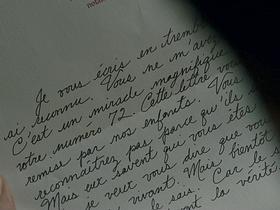 Je vous écris en tremb
ai reconnu. Vous ne m'avez
C'est un miracle magnifique
votre numéro 72. Cette lettre vous
remise par nos enfants. Vous
reconnaîtrez parce qu'ils
Mais eux savent que vous êtes
je veux vous dire que vou
vivant. Mais bientôt
le sais. Car le
la vérité.